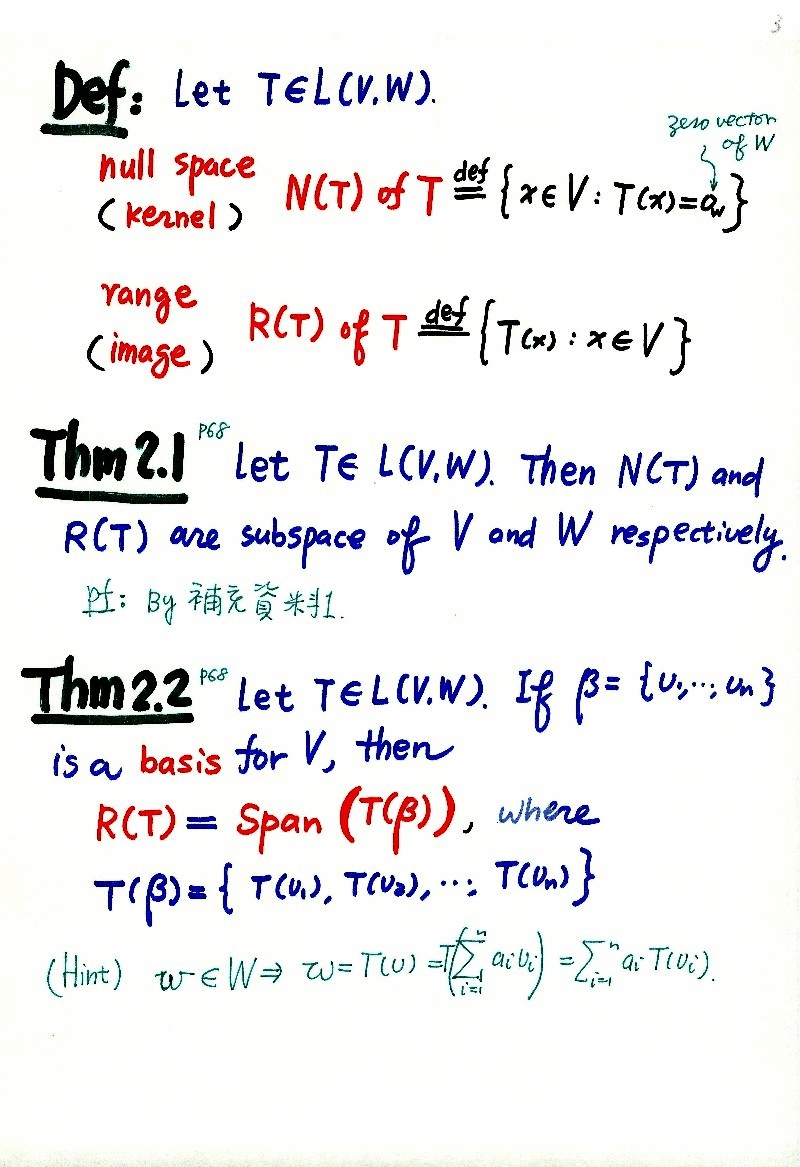 3
Def: Let T∈L(V,W).
zero vector
of W
null space
(kernel)
N(T) of T def= {x∈V: T(x)=0w}
range
(image)
R(T) of T def= {T(x): x∈V}
Thm 2.1 P68 Let T∈ L(V,W). Then N(T) and
R(T) are subspace of V and W respectively.
pf: By 補充資料1.
Thm 2.2 P68 Let T∈L(V,W). If β= {υ1,…,υn}
is a basis for V, then
R(T) = Span (T(β)), where
T(β)= { T(υ1), T(υ2), …, T(υn) }
(Hint) w∈W⇒ w=T(υ) =T(∑_{i=1}^n aiυi) =∑_{i=1}^n ai T(υi).